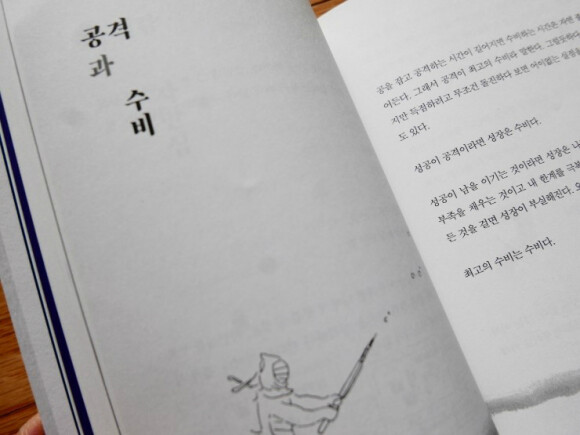 공격
과
수
비
공을 잡고 공격하는 시간이 길어지면 수비하는 시간은 자연
어든다. 그래서 공격이 최고의 수비라 말한다. 그럴듯하다.
지만 득점하려고 무조건 돌진하다 보면 어이없는 실점
도 있다.
성공이 공격이라면 성장은 수비다.
성공이 남을 이기는 것이라면 성장은 나
부족을 채우는 것이고 내 한계를 극복
든 것을 걸면 성장이 부실해진다.
최고의 수비는 수비다.